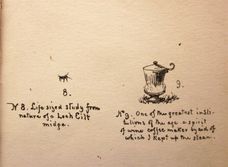 8.
Nº 8. Life sized study from
nature of a Loch Eilt
midge.
9.
Nº 9. One of the greatest insti-
tutions of the age a spirit
of wine coffee maker by aid of
which I kept up the steam.